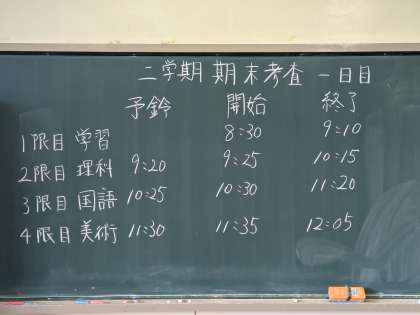 二学期 期末考査 一日目
予鈴 開始 終了
1限目 学習 8:30 9:10
2限目 理科 9:20 9:25 10:15
3限目 国語 10:25 10:30 11:20
4限目 美術 11:30 11:35 12:05